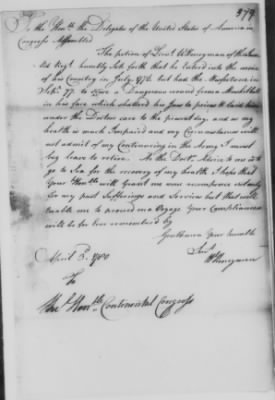 379
To the Hon.ble the Delegates of the United States of America in
Congress Assembled
The petition of Lieut. of the
Regt. humbly Sets forth that he Entered into the Service
of his Country in July 1776. but had the Misfortune in
77. to a Dangerous wound from a Musket Ball
in his face which shattered his Jaw to pieces
under the Doctors care to the present day, and as my
health is much Impaired and my Circumstances will
not admit of my Continuing in the Army I must
beg leave to retire. As the Doct.rs Advice is me to
go to Sea for the recovery of my health I hope that
Your Hon.ble will Grant me some recompence
for my past Sufferings and Services that will
enable me to proceed on a Voyage Your Compliance
will be for ever remembered by
Gentlemen Your humble
Serv.t
April 1780
To
The Hon.ble Continental Congress